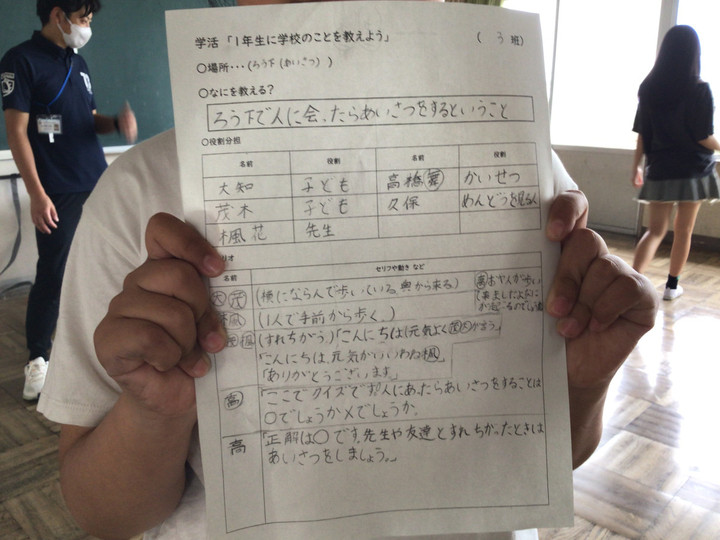 学活 「1年生に学校のことを教えよう」 ( 3 班)
○場所・・・(ろう下 (あいさつ) )
○なにを教える?
ろう下で人に会ったらあいさつをするということ
○役割分担
名前 役割 名前 役割
大知 子ども 高橋 かいせつ
茂木 子ども 久保 めんどうを見る人
楓花 先生
リオ
名前 セリフや動き など
大 茂 (横にならんで歩いている。奥から来る)
楓 (1人で手前から歩く。)
(すれちがう)「こんにちは」(元気よく
「こんにちは、元気がいいわね 楓
「ありがとうございます。」
高 「ここでクイズです。人にあったらあいさつをすることは
○でしょうか×でしょうか。
高 「正解は○です。先生や友達とすれちがったときは
あいさつをしましょう。」